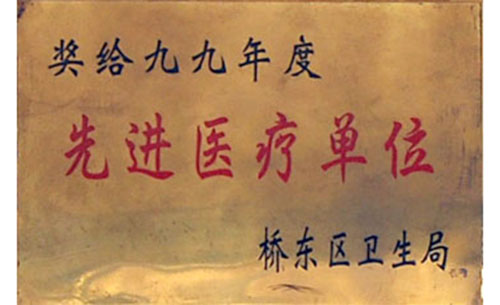 奖给九九年度
先进医疗单位
桥东区卫生局